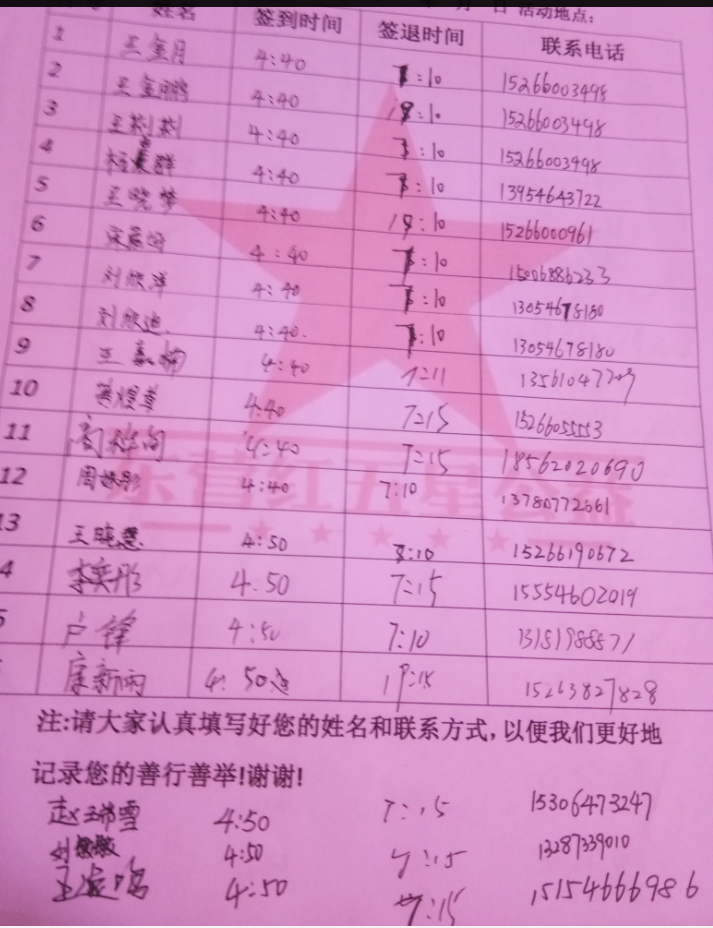 姓名 签到时间 签退时间 日 活动地点: 联系电话
1 王金月 4:40 7:10 15266003498
2 王金鹏 4:40 19:10 15266003498
3 4:40 7:10 15266003498
4 杨 群 4:40 7:10 13954643722
5 王晓梦 4:40 19:10 15266000961
6 4:40 7:10 15006886233
7 刘欣洋 4:40 7:10 13054678180
8 刘欣迪 4:40. 7:10 13054678180
9 王嘉楠 4:40 7:11
10 4:40 7:15 15266055553
11 4:40 7:15 18562020690
12 周姝彤 4:40 7:10 13780772661
13 王晓慧 4:50 7:10 15266190672
4 李奕彤 4:50 7:15 15554602019
5 卢锋 4:50 7:10
康新雨 4:50 19:15 15263827828
东营红五星公益
注:请大家认真填写好您的姓名和联系方式,以便我们更好地
记录您的善行善举!谢谢!
赵瑞雪 4:50 7:15 15306473247
刘敏敏 4:50 7:15 13287339010
4:50 7:15 15154666986